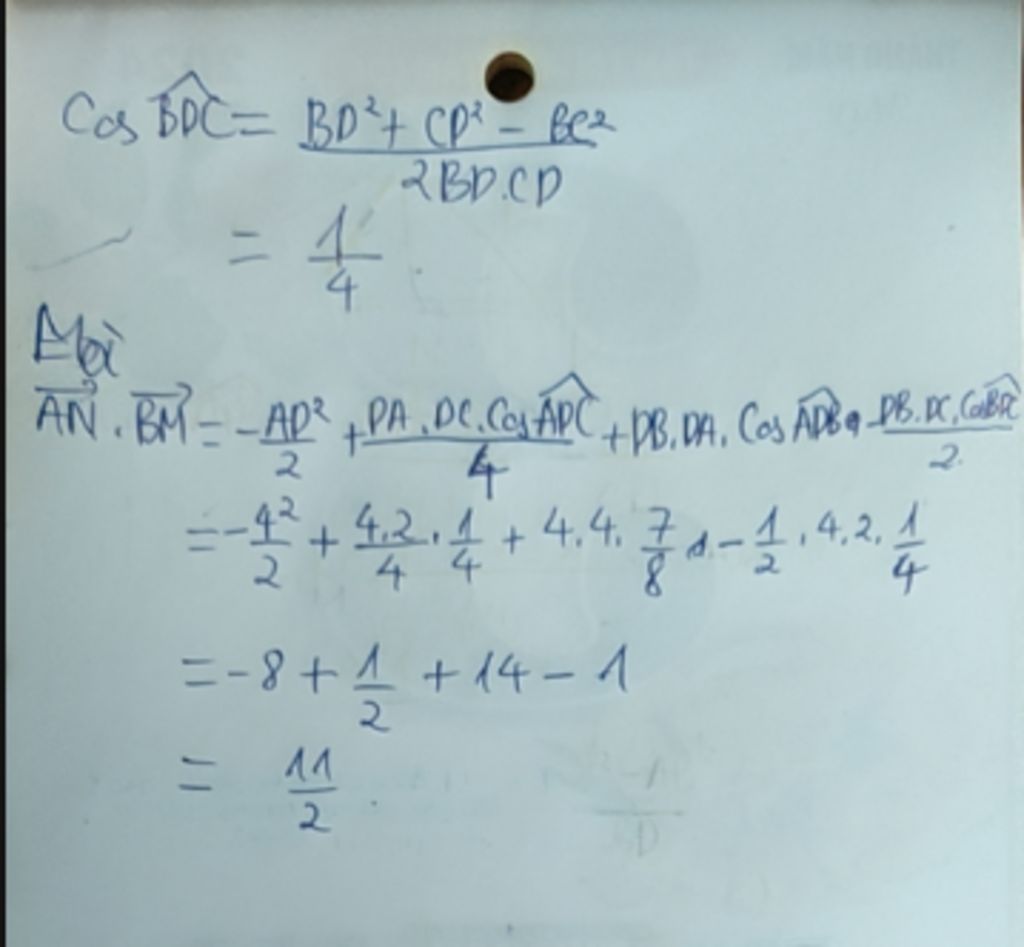 Cos BDC = (BD² + CD² - BC²) / (2BD.CD)
= 1/4
AN . BM = - AD²/2 + (DA.DC.Cos ADC)/4 + DB.DA. Cos ADB - (DB.DC.Cos BDC)/2
= - 4²/2 + 4.2/4 . 1/4 + 4.4. 7/8 - 1/2 . 4.2. 1/4
= -8 + 1/2 + 14 - 1
= 11/2